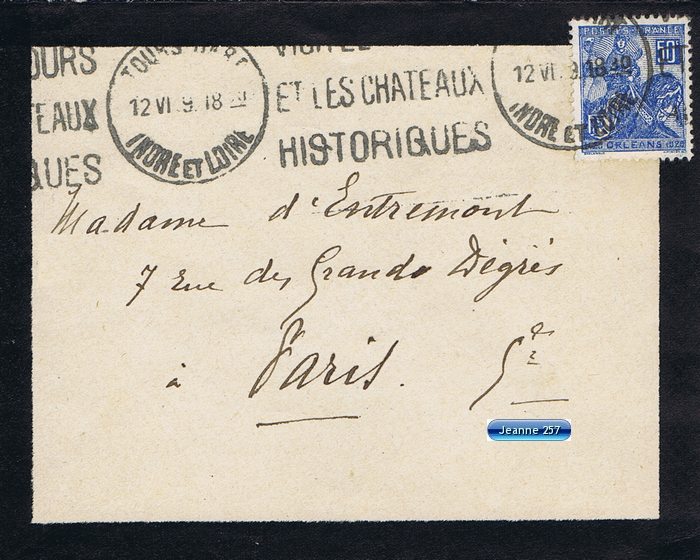 OURS
EAUX
QUES
TOURS GARE
12 VI 9. 18
INDRE ET LOIRE
VISITEZ
ET LES CHATEAUX
HISTORIQUES
12 VI 9. 18
INDRE ET LOIRE
POSTES FRANCE
50c
ORLEANS
Madame d'Entremont
7 rue des Grands Dégrés
à Paris. 5e
Jeanne 257